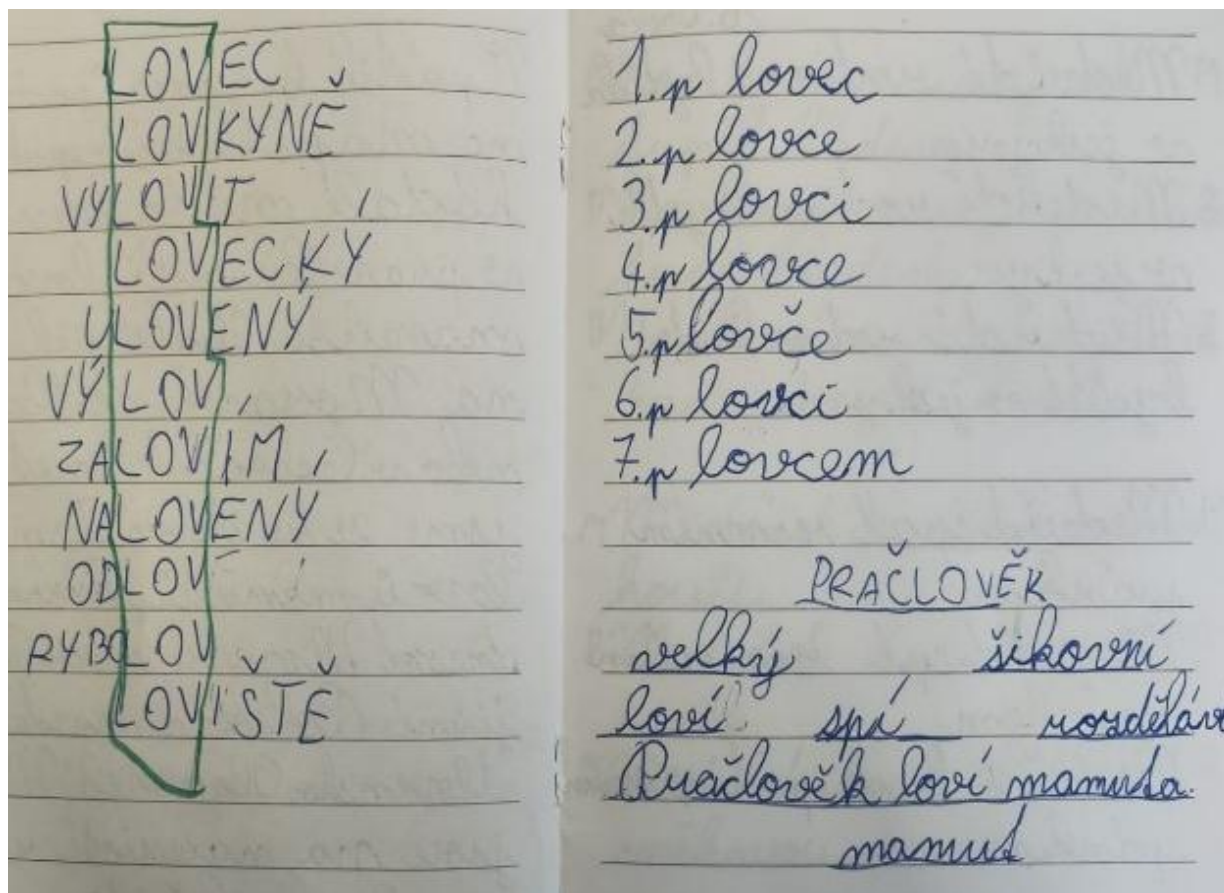 LOVEC
LOVKYNĚ
VYLOVIT
LOVECKÝ
ULOVENÝ
VÝLOV
ZALOVÍM
NALOVENÝ
ODLOV
RYBOLOV
LOVIŠTĚ
1. p lovec
2. p lovce
3. p lovci
4. p lovce
5. p lovče
6. p lovci
7. p lovcem
PRAČLOVĚK
velký šikovní
loví spí rozdělává
Pračlověk loví mamuta.
mamut